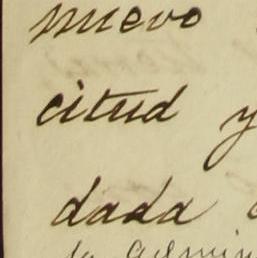 nuevo
citud y
dada
la admin